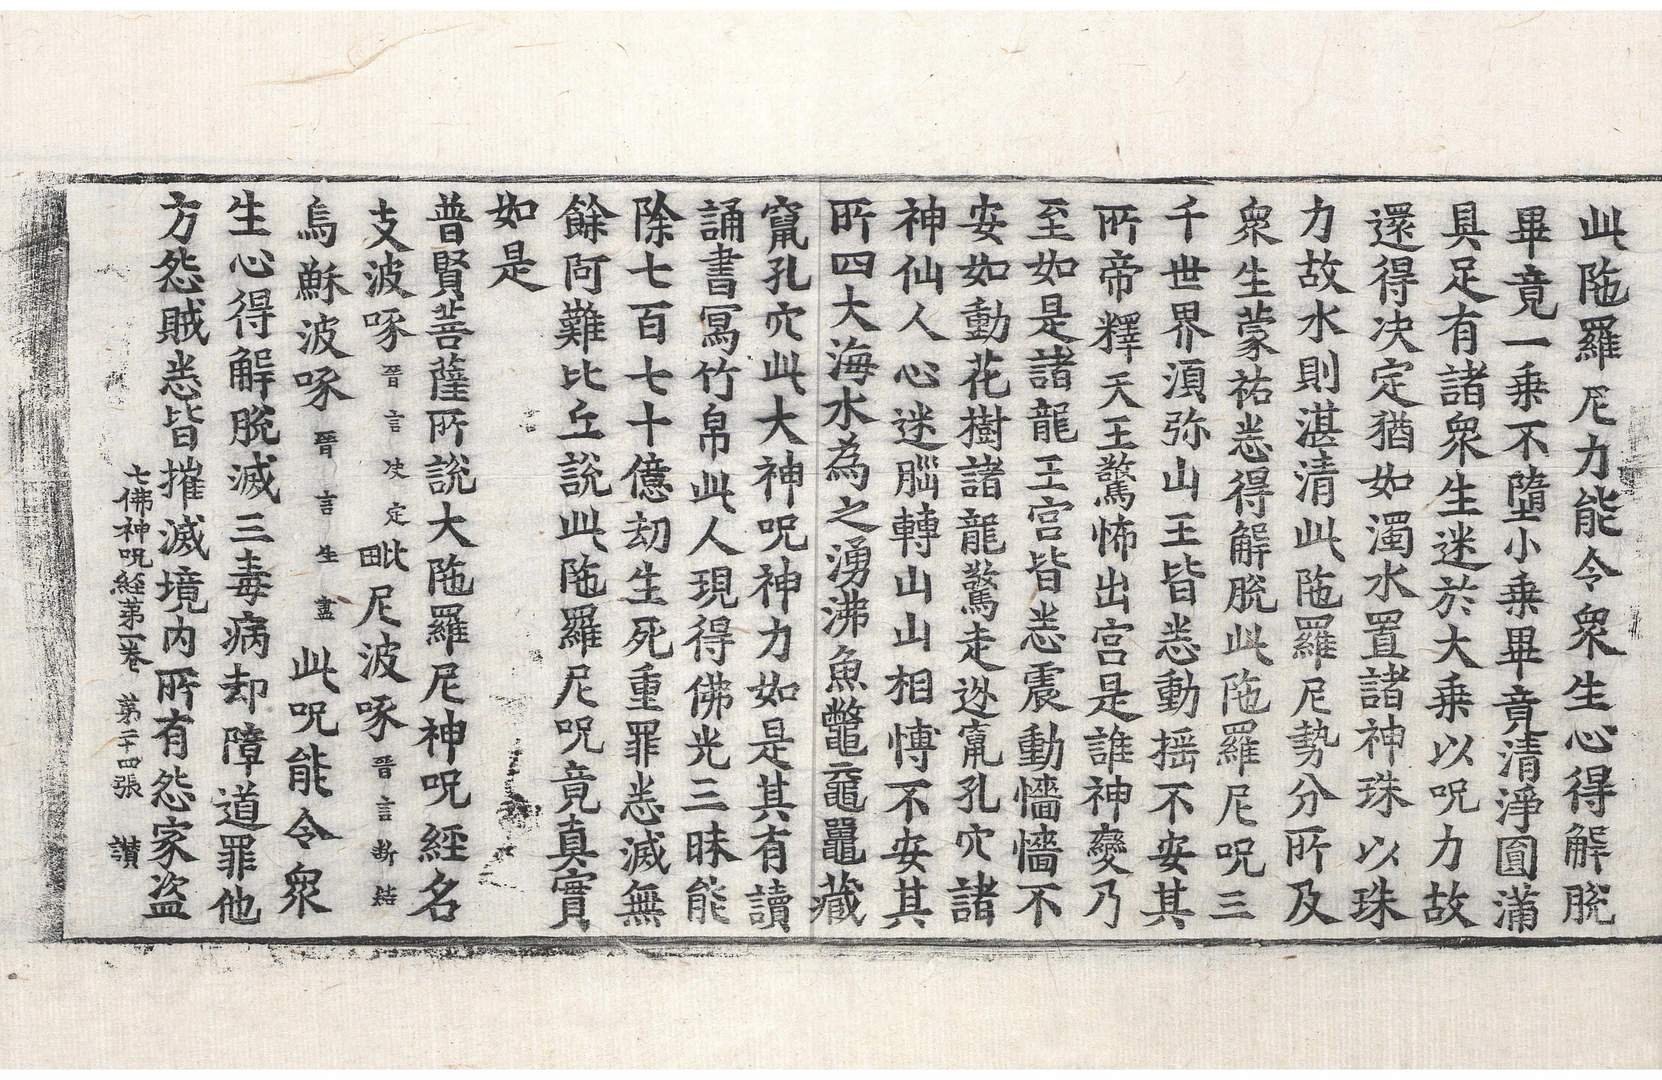 此陁羅尼力能令衆生心得解脫
畢竟一乗不墮小乗畢竟清淨圓滿
具足有諸衆生迷於大乗以呪力故
還得决定猶如濁水置諸神珠以珠
力故水則湛清此陁羅尼勢分所及
衆生蒙祐悉得解脫此陁羅尼呪三
千世界湏弥山王皆悉動揺不安其
所帝釋天王驚怖出宫是誰神變乃
至如是諸龍王宫皆悉震動懎懎不
安如動花樹諸龍驚走迯竄孔穴諸
神仙人心迷腦轉山山相愽不安其
所四大海水為之湧沸魚鼈黿鼉藏
竄孔穴此大神呪神力如是其有讀
誦書寫竹帛此人現得佛光三昧能
除七百七十億劫生死重罪悉滅無
餘阿難比丘說此陁羅尼呪竟真實
如是
普賢菩薩所說大陁羅尼神呪經名
支波啄晉言决定毗尼波啄晉言断結
烏蘇波啄晉言生盡此呪能令衆
生心得解脫滅三毒病却障道罪他
方怨賊悉皆摧滅境内所有怨家盗
七佛神呪經第一卷 第二十四張 讃